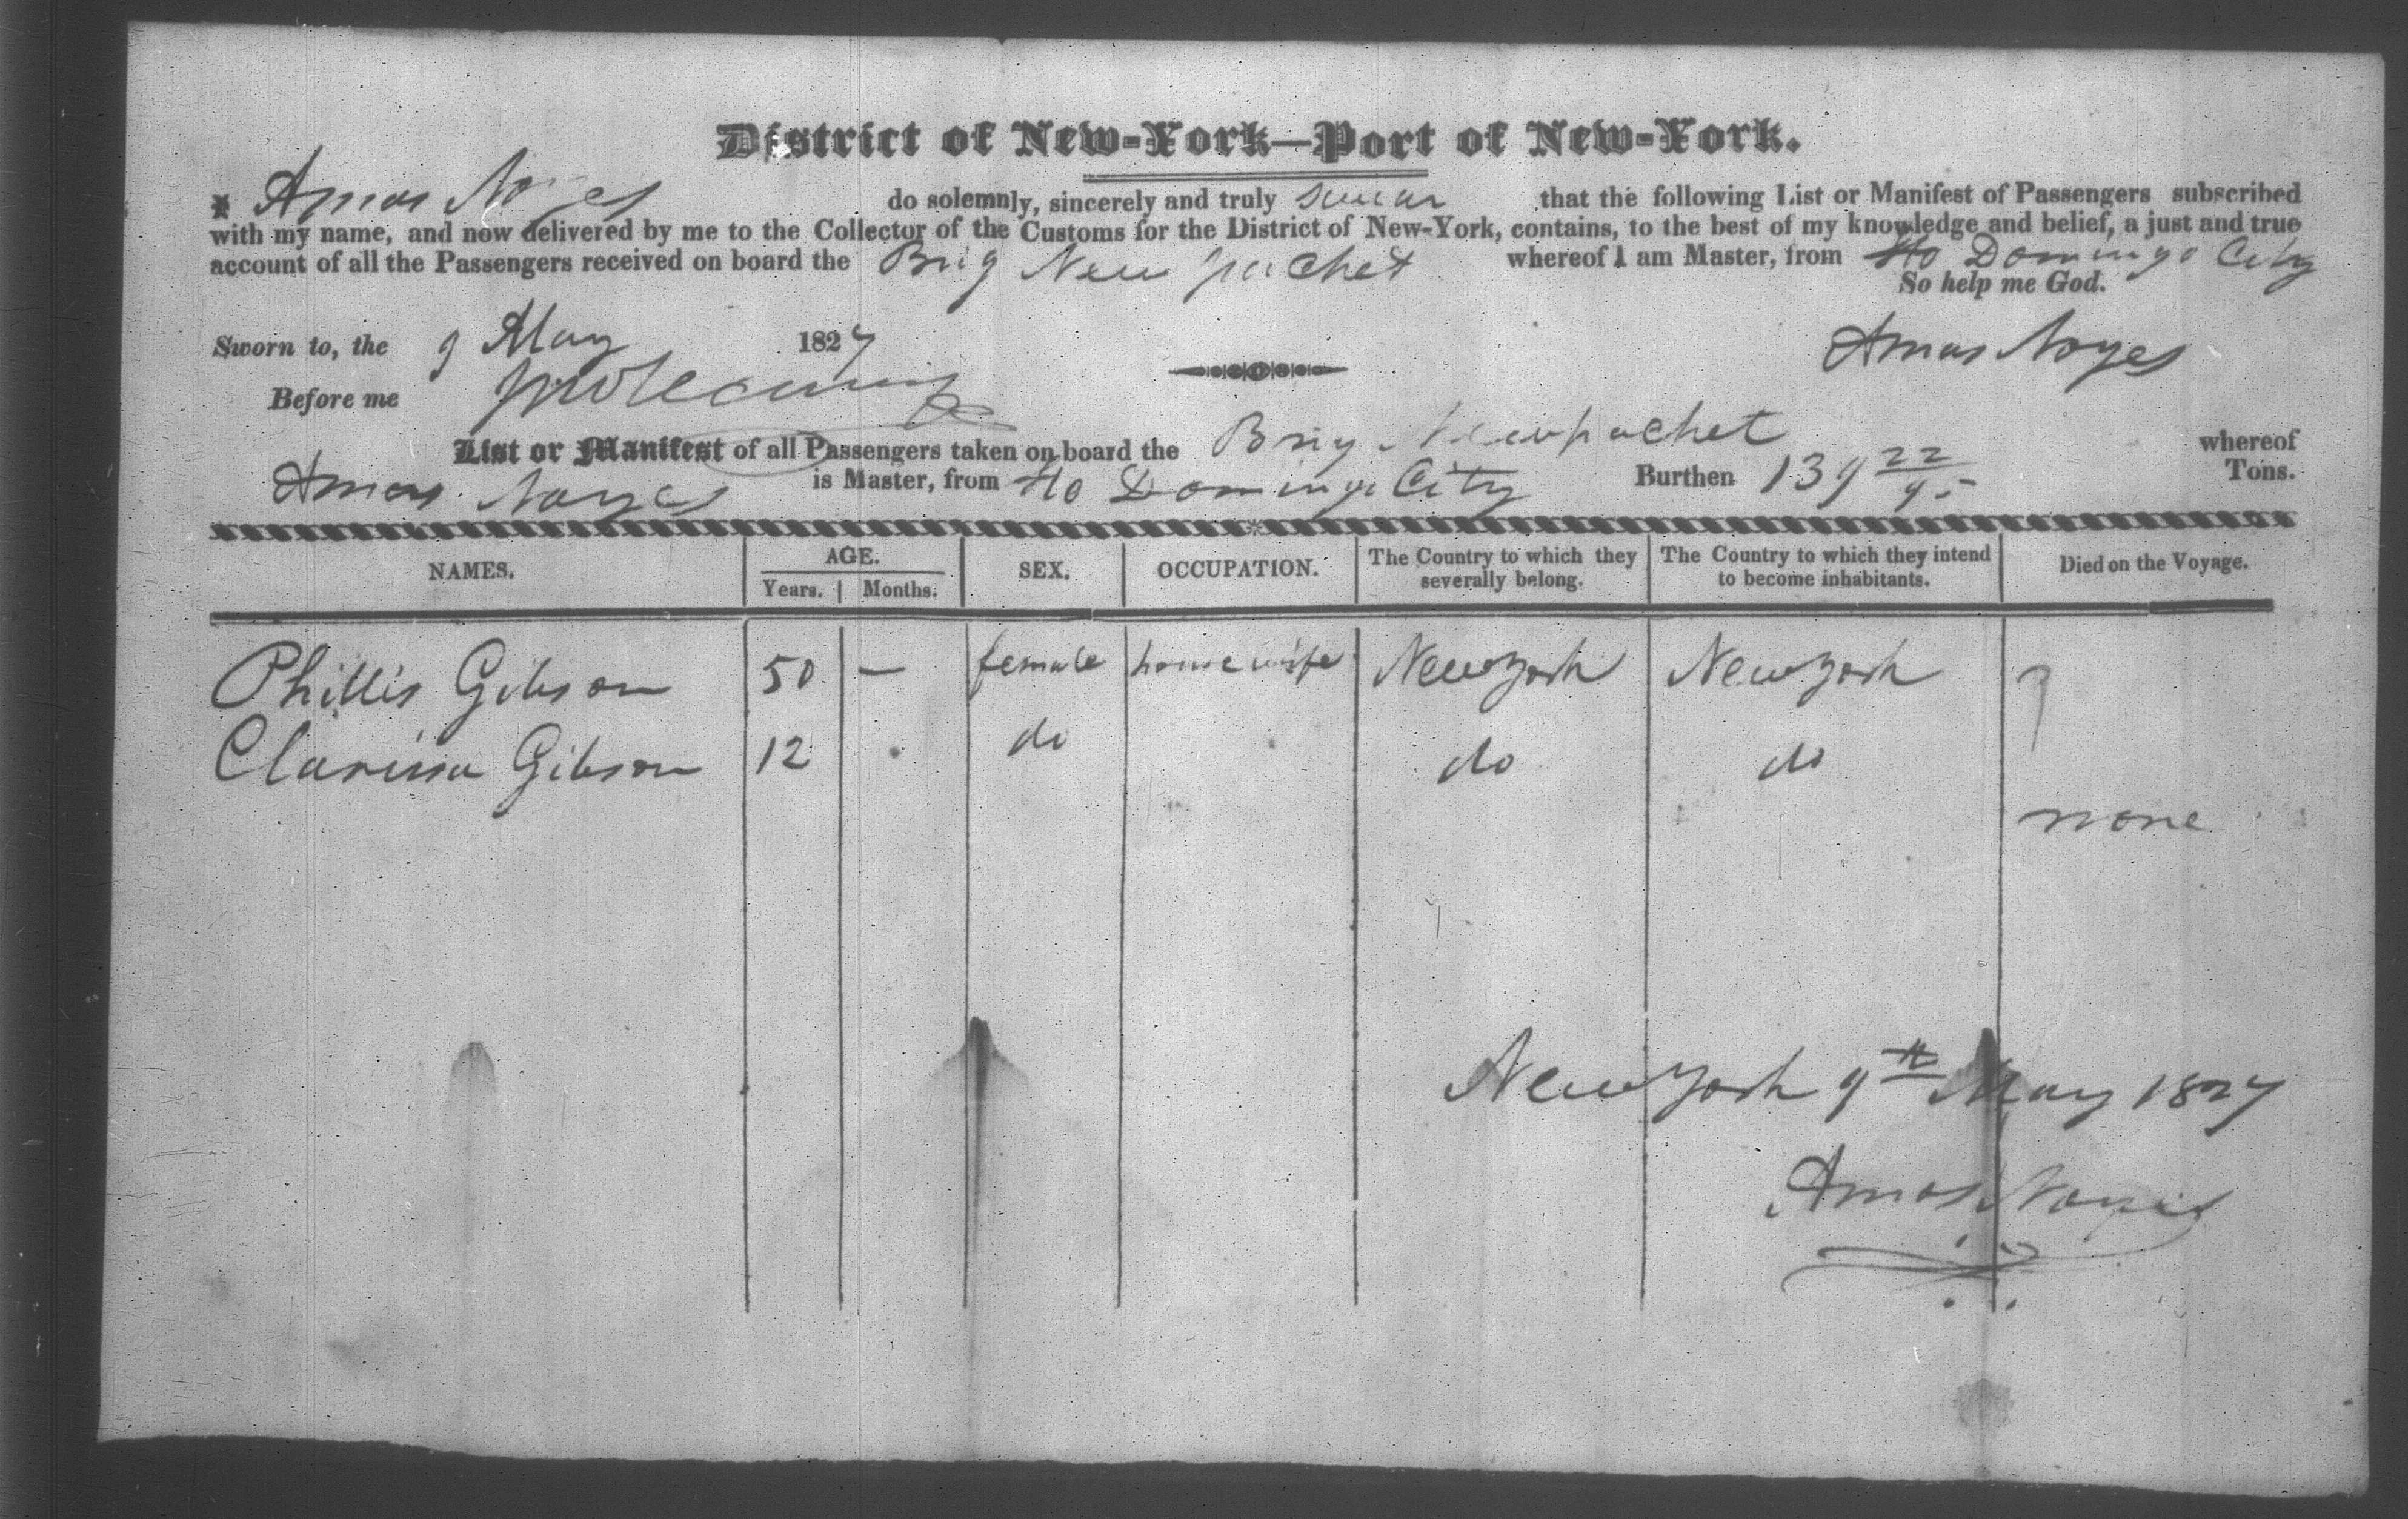 District of New-York—Port of New-York.
I Amos Noyes do solemnly, sincerely and truly swear that the following List or Manifest of Passengers subscribed
with my name, and now delivered by me to the Collector of the Customs for the District of New-York, contains, to the best of my knowledge and belief, a just and true
account of all the Passengers received on board the Brig New packet whereof I am Master, from Sto Domingo City
So help me God.
Sworn to, the 9 May 1827 Amos Noyes
Before me
List or Manifest of all Passengers taken on board the Brig Newpacket whereof
Amos Noyes is Master, from Sto Domingo City Burthen 139 22/95 Tons.
NAMES. AGE. SEX. OCCUPATION. The Country to which they severally belong. The Country to which they intend to become inhabitants. Died on the Voyage.
Years. Months.
Phillis Gibson 50 — female housewife New York New York
Clarissa Gibson 12 do do do
none
New York 9th May 1827
Amos Noyes